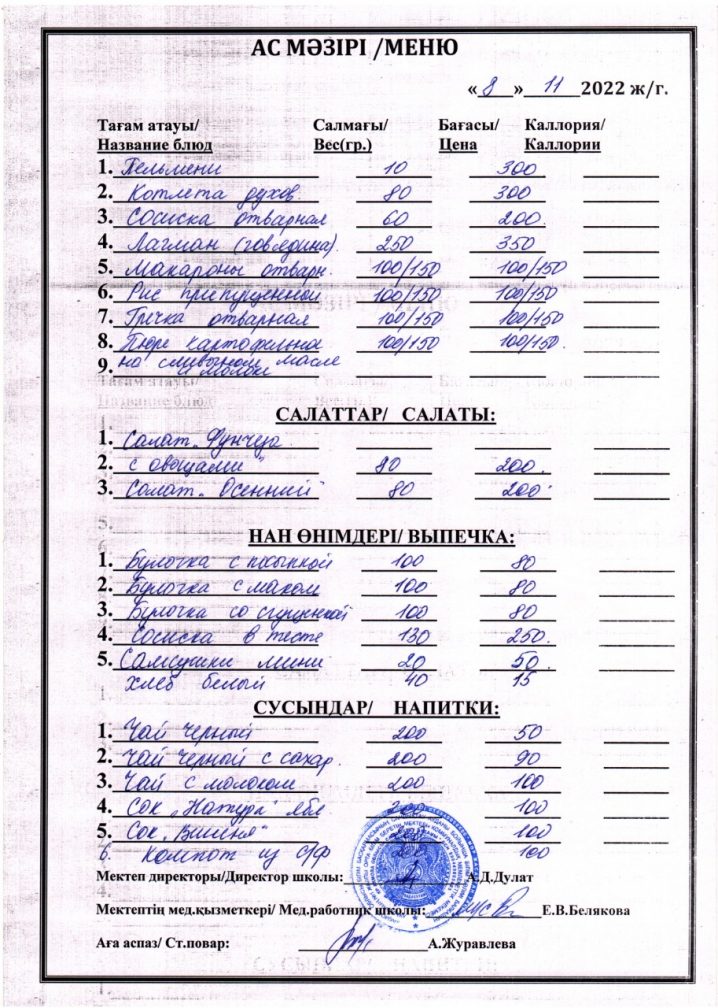 АС МӘЗІРІ /МЕНЮ
« 8 » 11 2022 ж/г.
Тағам атауы/ Салмағы/ Бағасы/ Каллория/
Название блюд Вес(гр.) Цена Каллории
1. Пельмени 10 300
2. Котлета духов. 80 300
3. Сосиска отварная 60 200
4. Лагман (говядина). 250 350
5. Макароны отварн. 100/150 100/150
6. Рис припущенной 100/150 100/150
7. Гречка отварная 100/150 100/150
8. Пюре картофельна 100/150 100/150.
9. на сливочном масле
и молоке
САЛАТТАР/ САЛАТЫ:
1. Салат „Фунчеза
2. с овощами" 80 200.
3. Салат „Осенний" 80 200.
НАН ӨНІМДЕРІ/ ВЫПЕЧКА:
1. Булочка с посыпкой 100 80
2. Булочка с маком 100 80
3. Булочка со сгущенкой 100 80
4. Сосиска в тесте 130 250.
5. Самсушки мини 20 50.
хлеб белый 40 15
СУСЫНДАР/ НАПИТКИ:
1. Чай черный 200 50
2. Чай черный с сахар. 200 90
3. Чай с молоком 200 100
4. Сок „Натура" ябл 200 100
5. Сок „Вишня" 200 100
6. Компот из с/ф 200 100
Мектеп директоры/Директор школы: А.Д.Дулат
Мектептің мед.қызметкері/ Мед.работник школы: Е.В.Белякова
Аға аспаз/ Ст.повар: А.Журавлева